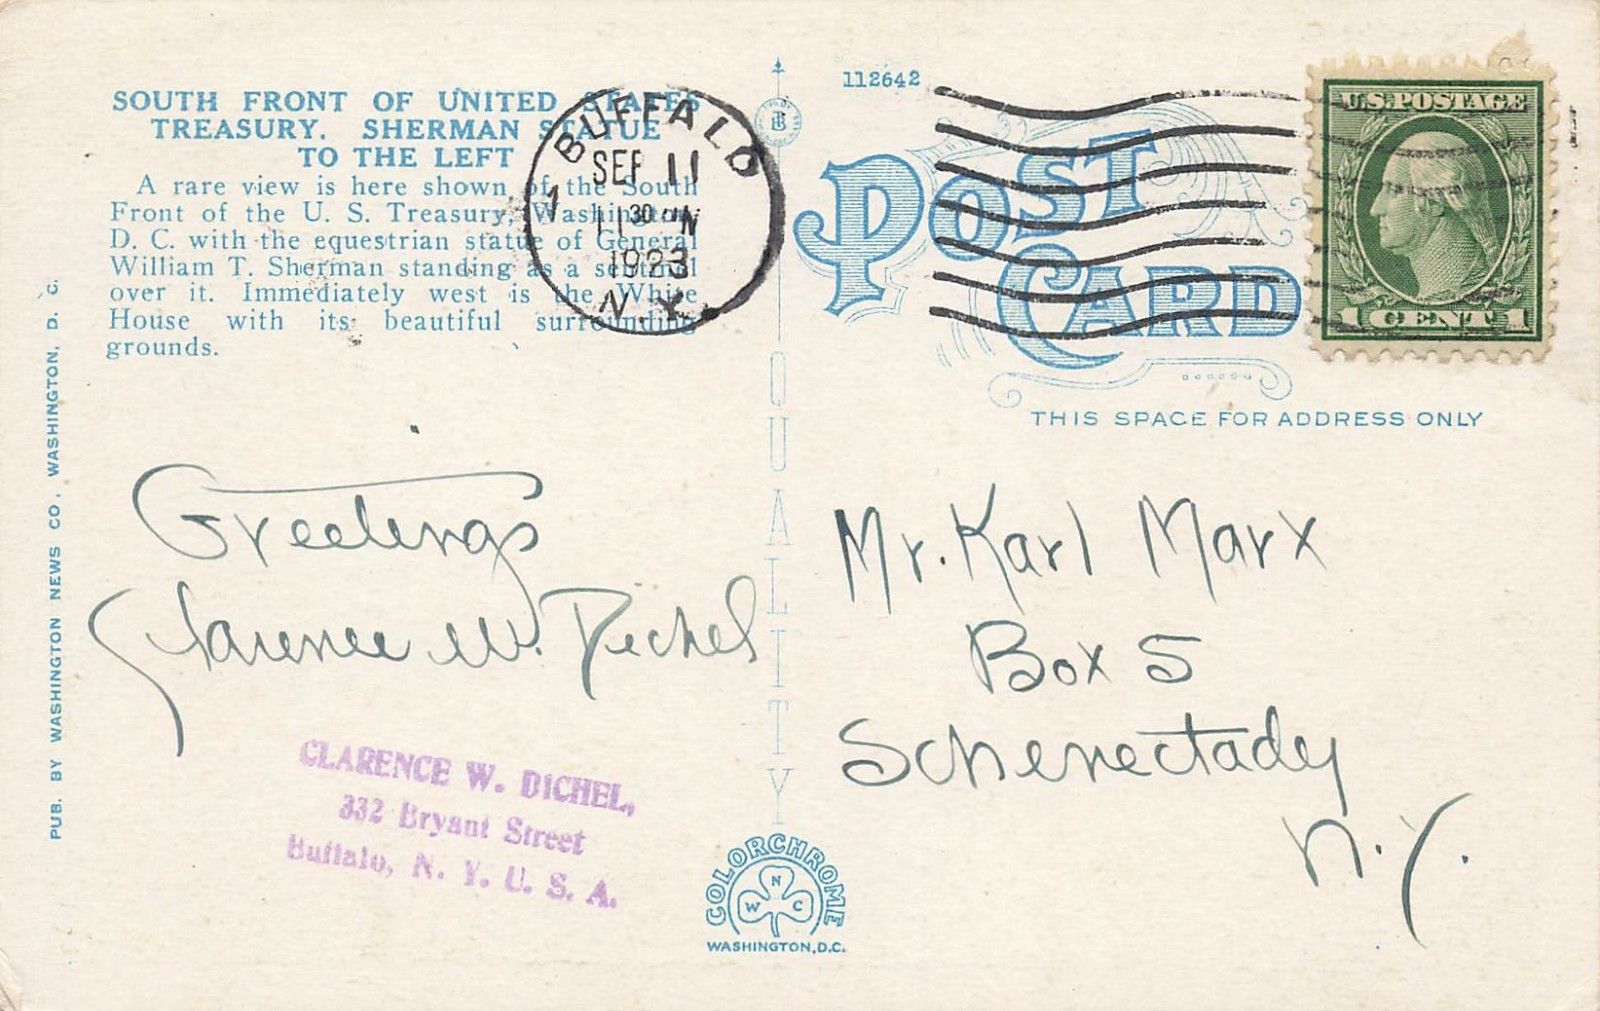 SOUTH FRONT OF UNITED STATES
TREASURY. SHERMAN STATUE
TO THE LEFT
A rare view is here shown of the South
Front of the U. S. Treasury, Washington,
D. C. with the equestrian statue of General
William T. Sherman standing as a sentinel
over it. Immediately west is the White
House with its beautiful surrounding
grounds.
PUB. BY WASHINGTON NEWS CO., WASHINGTON, D. C.
BUFFALO
SEP 11
11 30
1923
N.Y.
112642
POST
CARD
THIS SPACE FOR ADDRESS ONLY
U.S. POSTAGE
1 CENT 1
QUALITY
Greetings
Clarence W. Dichel
CLARENCE W. DICHEL,
332 Bryant Street
Buffalo, N. Y. U. S. A.
Mr. Karl Marx
Box 5
Schenectady
N.Y.
COLORCHROME
N
W C
WASHINGTON, D.C.